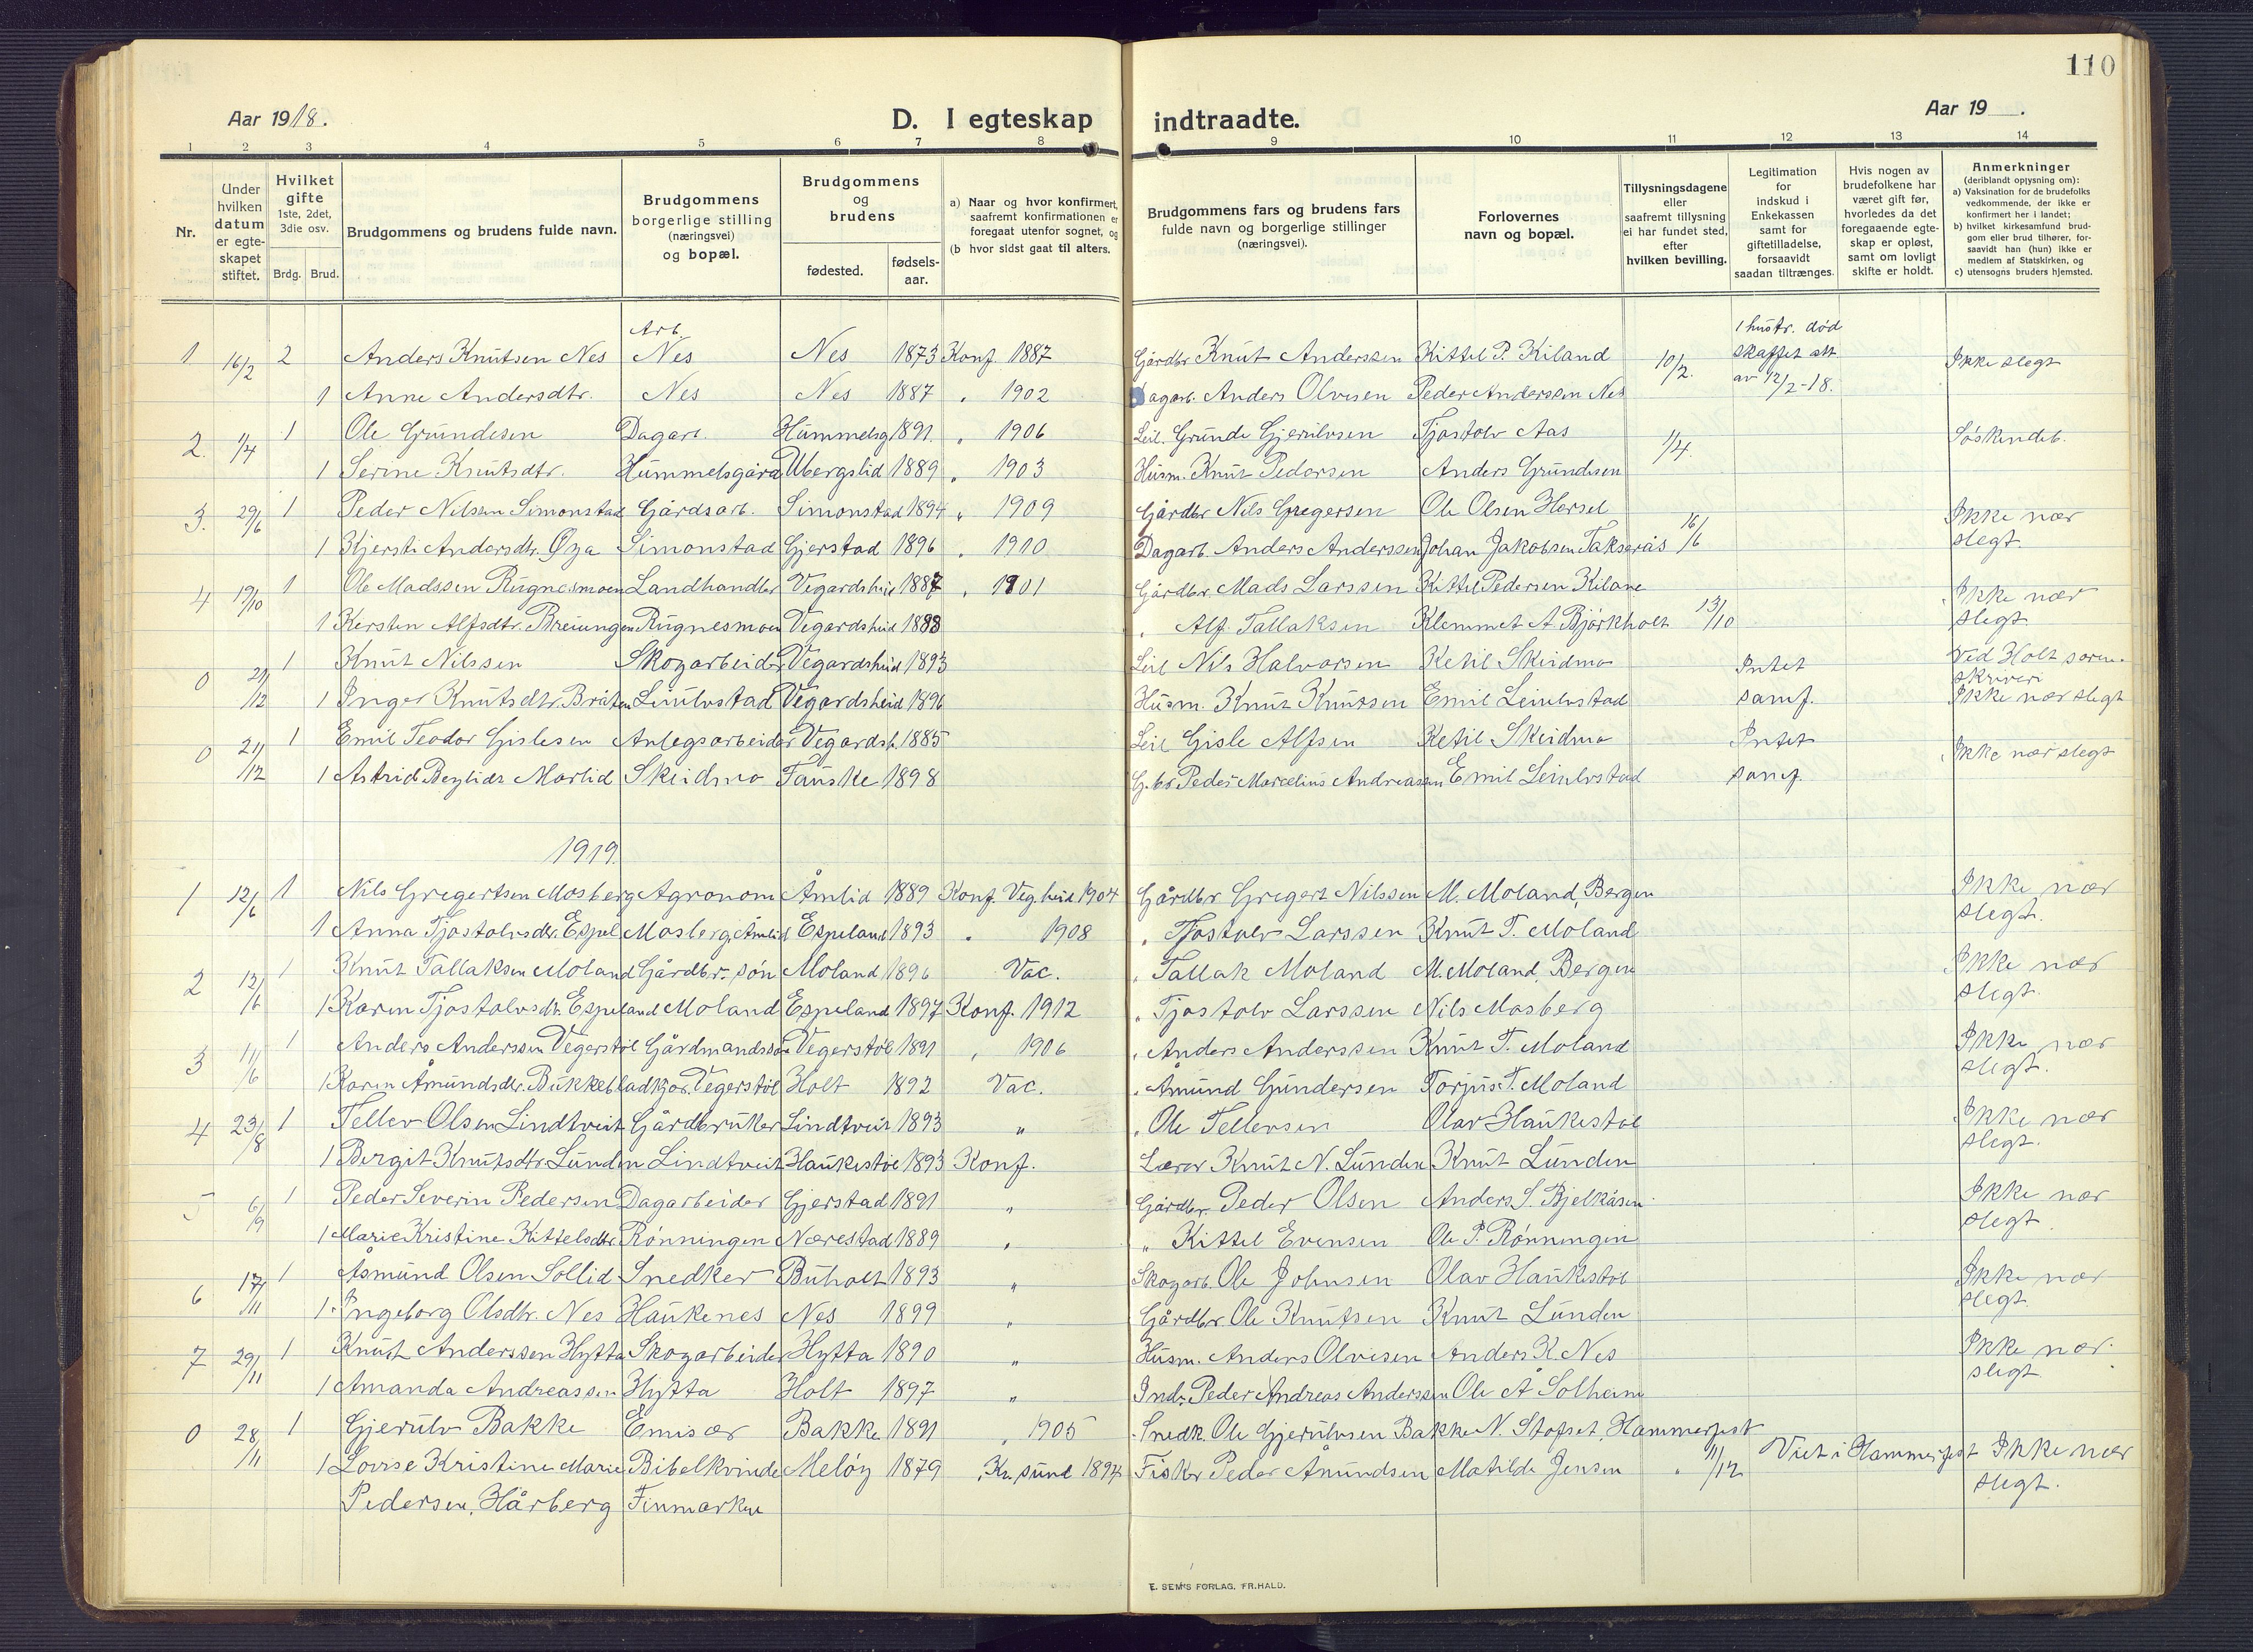 110
Aar 1918. D. I egteskap indtraadte. Aar 19 .
1 2 3 4 5 6 7 8 9 10 11 12 13 14
Nr.
Under hvilken datum er egteskapet stiftet.
Hvilket gifte 1ste, 2det, 3die osv.
Brdg. Brud.
Brudgommens og brudens fulde navn.
Brudgommens borgerlige stilling (næringsvei) og bopæl.
Brudgommens og brudens
fødested. fødsels-aar.
a) Naar og hvor konfirmert, saafremt konfirmationen er foregaat utenfor sognet, og
(b hvor sidst gaat til alters.
Brudgommens fars og brudens fars fulde navn og borgerlige stillinger (næringsvei).
Forlovernes navn og bopæl.
Tillysningsdagene eller saafremt tillysning ei har fundet sted, efter hvilken bevilling.
Legitimation for indskud i Enkekassen samt for giftetilladelse, forsaavidt saadan tiltrænges.
Hvis nogen av brudefolkene har været gift før, hvorledes da det foregaaende egteskap er opløst, samt om lovligt skifte er holdt.
Anmerkninger (deriblandt opjysning om): a) Vaksination for de brudefolks vedkommende, der ikke er konfirmert her i landet; b) hvilket kirkesamfund brudgom eller brud tilhører, forsaavidt han (hun) ikke er medlem af Statskirken, og c) utensogns bruders hjemsted.
1 16/2 2 Anders Knutsen Nes Arb. Nes Nes 1873 Konf. 1887 Gårdbr. Knut Anderssen Kittel P. Kiland 10/2. 1 hustr. død skaffet att. av 12/2-18. Ikke slegt
1 Anne Andersdtr. Nes Nes 1887 " 1902 Dagarb. Anders Olvesen Peder Anderssen Nes
2. 1/4 1 Ole Grundesen Dagarb. Hummelsg 1891. " 1906 Leil. Grunde Gjerulvsen Tjostolv Aas 1/4. Søskendeb.
1 Serine Knutsdtr. Hummelsgård Ubergslid 1889 " 1903 Husm. Knut Pedersen Anders Grundesen
3. 29/6 1 Peder Nilsen Simonstad Gårdsarb. Simonstad 1894 " 1909 Gårdbr. Nils Gregersen Ole Olsen Hersel 16/6 Ikke nær slegt.
1 Kjersti Andersdtr. Øya Simonstad Gjerstad 1896 " 1910 Dagarb. Anders Anderssen Johan Jakobsen Takserås
4 19/10 1 Ole Madssen Rugnesmoen Landhandler Vegardsheid 1887 " 1901 Gårdbr. Mads Larssen Kittel Pedersen Kilane 13/10 Ikke nær slegt.
1 Kersten Alfsdtr. Breiungen Rugnesmoen Vegardsheid 1888 " Alf Tallaksen Klemmet A Bjørkholt
0 21/12 1 Knut Nilssen Skogarbeider Vegardsheid 1893 Leil Nils Halvorsen Ketil Skeidmo Intet samf. Ved Holt sorenskriveri Ikke nær slegt
1 Inger Knutsdtr. Bråten Leiulvstad Vegardsheid 1896 Husm. Knut Knutsen Emil Leiulvstad
0 21/12 1 Emil Teodor Gislesen Anlegsarbeider Vegardsh. 1885 Leil Gisle Alfsen Ketil Skeidmo Intet samf Ikke nær slegt
1 Astrid Marlid Skeidmo Fauske 1898 G.br. Peder Marcelius Andreassen Emil Leiulvstad
1919.
1 12/6 1 Nils Gregertsen Mosberg Agronom Åmlid 1889 Konf. Veg.heid 1904 Gårdbr. Gregert Nilssen M. Moland, Bergen Ikke nær slegt.
1 Anna Tjostolvsdtr. Espel Mosberg, Åmlid Espeland 1893 " 1908 " Tjostolv Larssen Knut T. Moland
2 12/6 1 Knut Tallaksen Moland Gårdbr. søn Moland 1896 Vac. " Tallak Moland M. Moland, Bergen Ikke nær slegt.
1 Karen Tjostolvsdtr. Espeland Moland Espeland 1897 Konf. 1912 " Tjostolv Larssen Nils Mosberg
3 11/6 1 Anders Anderssen Vegerstøl Gårdmandssøn Vegerstøl 1891 " 1906 " Anders Anderssen Knut T. Moland Ikke nær slegt.
1 Karen Åmundsdtr. Bukkeblad Vegerstøl Holt 1892 Vac. " Åmund Gundersen Torjus T. Moland
4 23/8 1 Tellev Olsen Lindtveit Gårdbruker Lindtveit 1893 " " Ole Tellevsen Olav Haukestøl Ikke nær slegt.
1 Bergit Knutsdtr. Lunden Lindtveit Haukestøl 1893 Konf. Lærer Knut N. Lunden Knut Lunden
5 6/9 1 Peder Severin Pedersen Dagarbeider Gjerstad 1891 " Gårdbr. Peder Olsen Anders S. Bjelkåsen Ikke nær slegt.
1 Marie Kristine Kittelsdtr. Rønningen Nærestad 1889 " " Kittel Evensen Ole P. Rønningen
6 17/11 1 Åsmund Olsen Sollid Snedker Buholt 1893 " Skogarb. Ole Johnsen Olav Haukestøl Ikke nær slegt.
1 Ingeborg Olsdtr. Nes Haukenes Nes 1899 " Gårdbr. Ole Knutsen Knut Lunden
7 29/11 1 Knut Anderssen Hytta Skogarbeider Hytta 1890 " Husm. Anders Olvesen Anders K. Nes Ikke nær slegt.
1 Amanda Andreassen Hytta Holt 1897 " Ind. Peder Andreas Anderssen Ole A Solheim
0 28/11 1 Gjerulv Bakke Emisær Bakke 1891 " 1905 Snedk. Ole Gjerulvsen Bakke N. Stofset, Hammerfest
1 Lovise Kristine Marie Bibelkvinde Meløy 1879 " Kr. sund 1894 Fisker Peder Amundsen Matilde Jensen " 11/12 Viet i Hammerfest Ikke nær slegt.
Pedersen, Hårberg Finmarken
E. SEM'S FORLAG, FR.HALD.